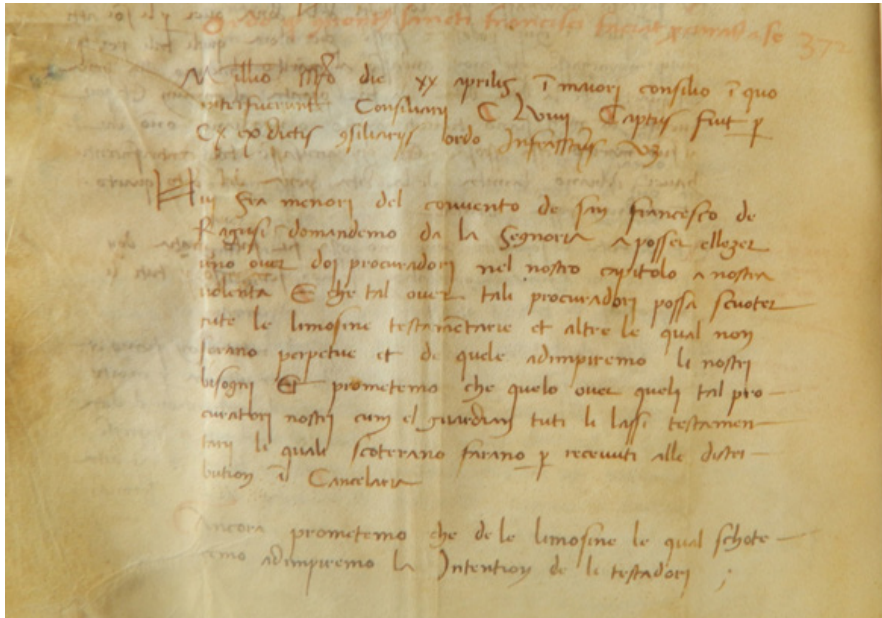 sancti francisci faciat 372
Millio die xx aprilis, ī maiori consilio ī quo
interfuerunt Consiliarii C Lviiii Captus fuit p
C ex dictis ɔsiliariis ordo Infrasscriptus vz
Nui Fra menori del convento de san francesco de
Ragusi domandemo da la Segnoria a posser ellezer
uno over doi procuradori nel nostro capitolo a nostra
volenta E che tal over tali procuradori possa scuoter
tute le limosine testamētarie et altre le qual non
serano perpetue et de quele adimpiremo li nostri
bisogni Et prometemo che quelo over queli tal pro
curatori nostri cum el guardian tuti li lassi testamen
tarii li quali scoterano farano p recevuti alle distri
bution ī Cancelaria
Ancora prometemo che de le limosine le qual schote
remo adimpiremo la Intention de li testadori ;